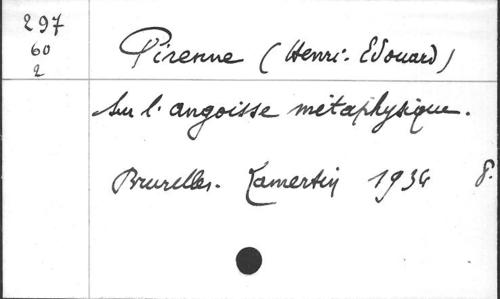 297
60
2
Pirenne (Henri-Edouard)
Sur l'angoisse métaphysique.
Bruxelles. Lamertin 1934 8°.